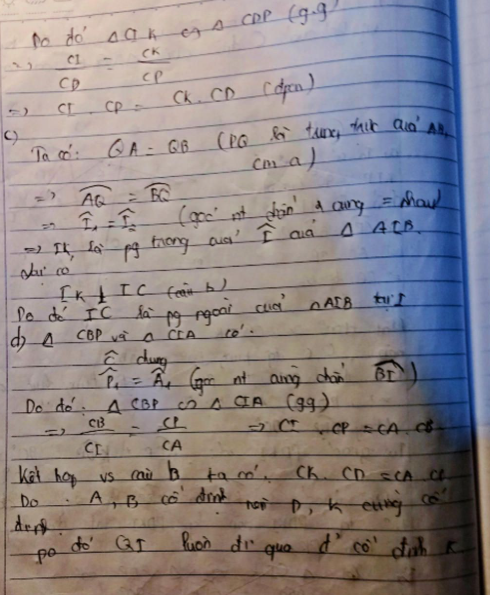 Do đó Δ CIK ∽ Δ CDP (g.g)
=> CI/CD = CK/CP
=> CI . CP = CK . CD (đpcm)
c)
Ta có: QA = QB (PQ là trung trực của AB, cm a)
=> AQ = BQ
=> Î₁ = Î₂ (góc nt chắn 2 cung = nhau)
=> IK là pg trong của Î của Δ AIB.
có
IK ⊥ IC (câu b)
Do đó IC là pg ngoài của Δ AIB tại I
d) Δ CBP và Δ CIA có:
Ĉ chung
P̂₁ = Â₁ (góc nt cùng chắn BI)
Do đó: Δ CBP ∽ Δ CIA (gg)
=> CB/CI = CP/CA => CI . CP = CA . CB
Kết hợp vs câu b ta có: CK . CD = CA . CB
Do A, B cố định nên D, K cũng cố
định
Do đó QI luôn đi qua đ' cố định K